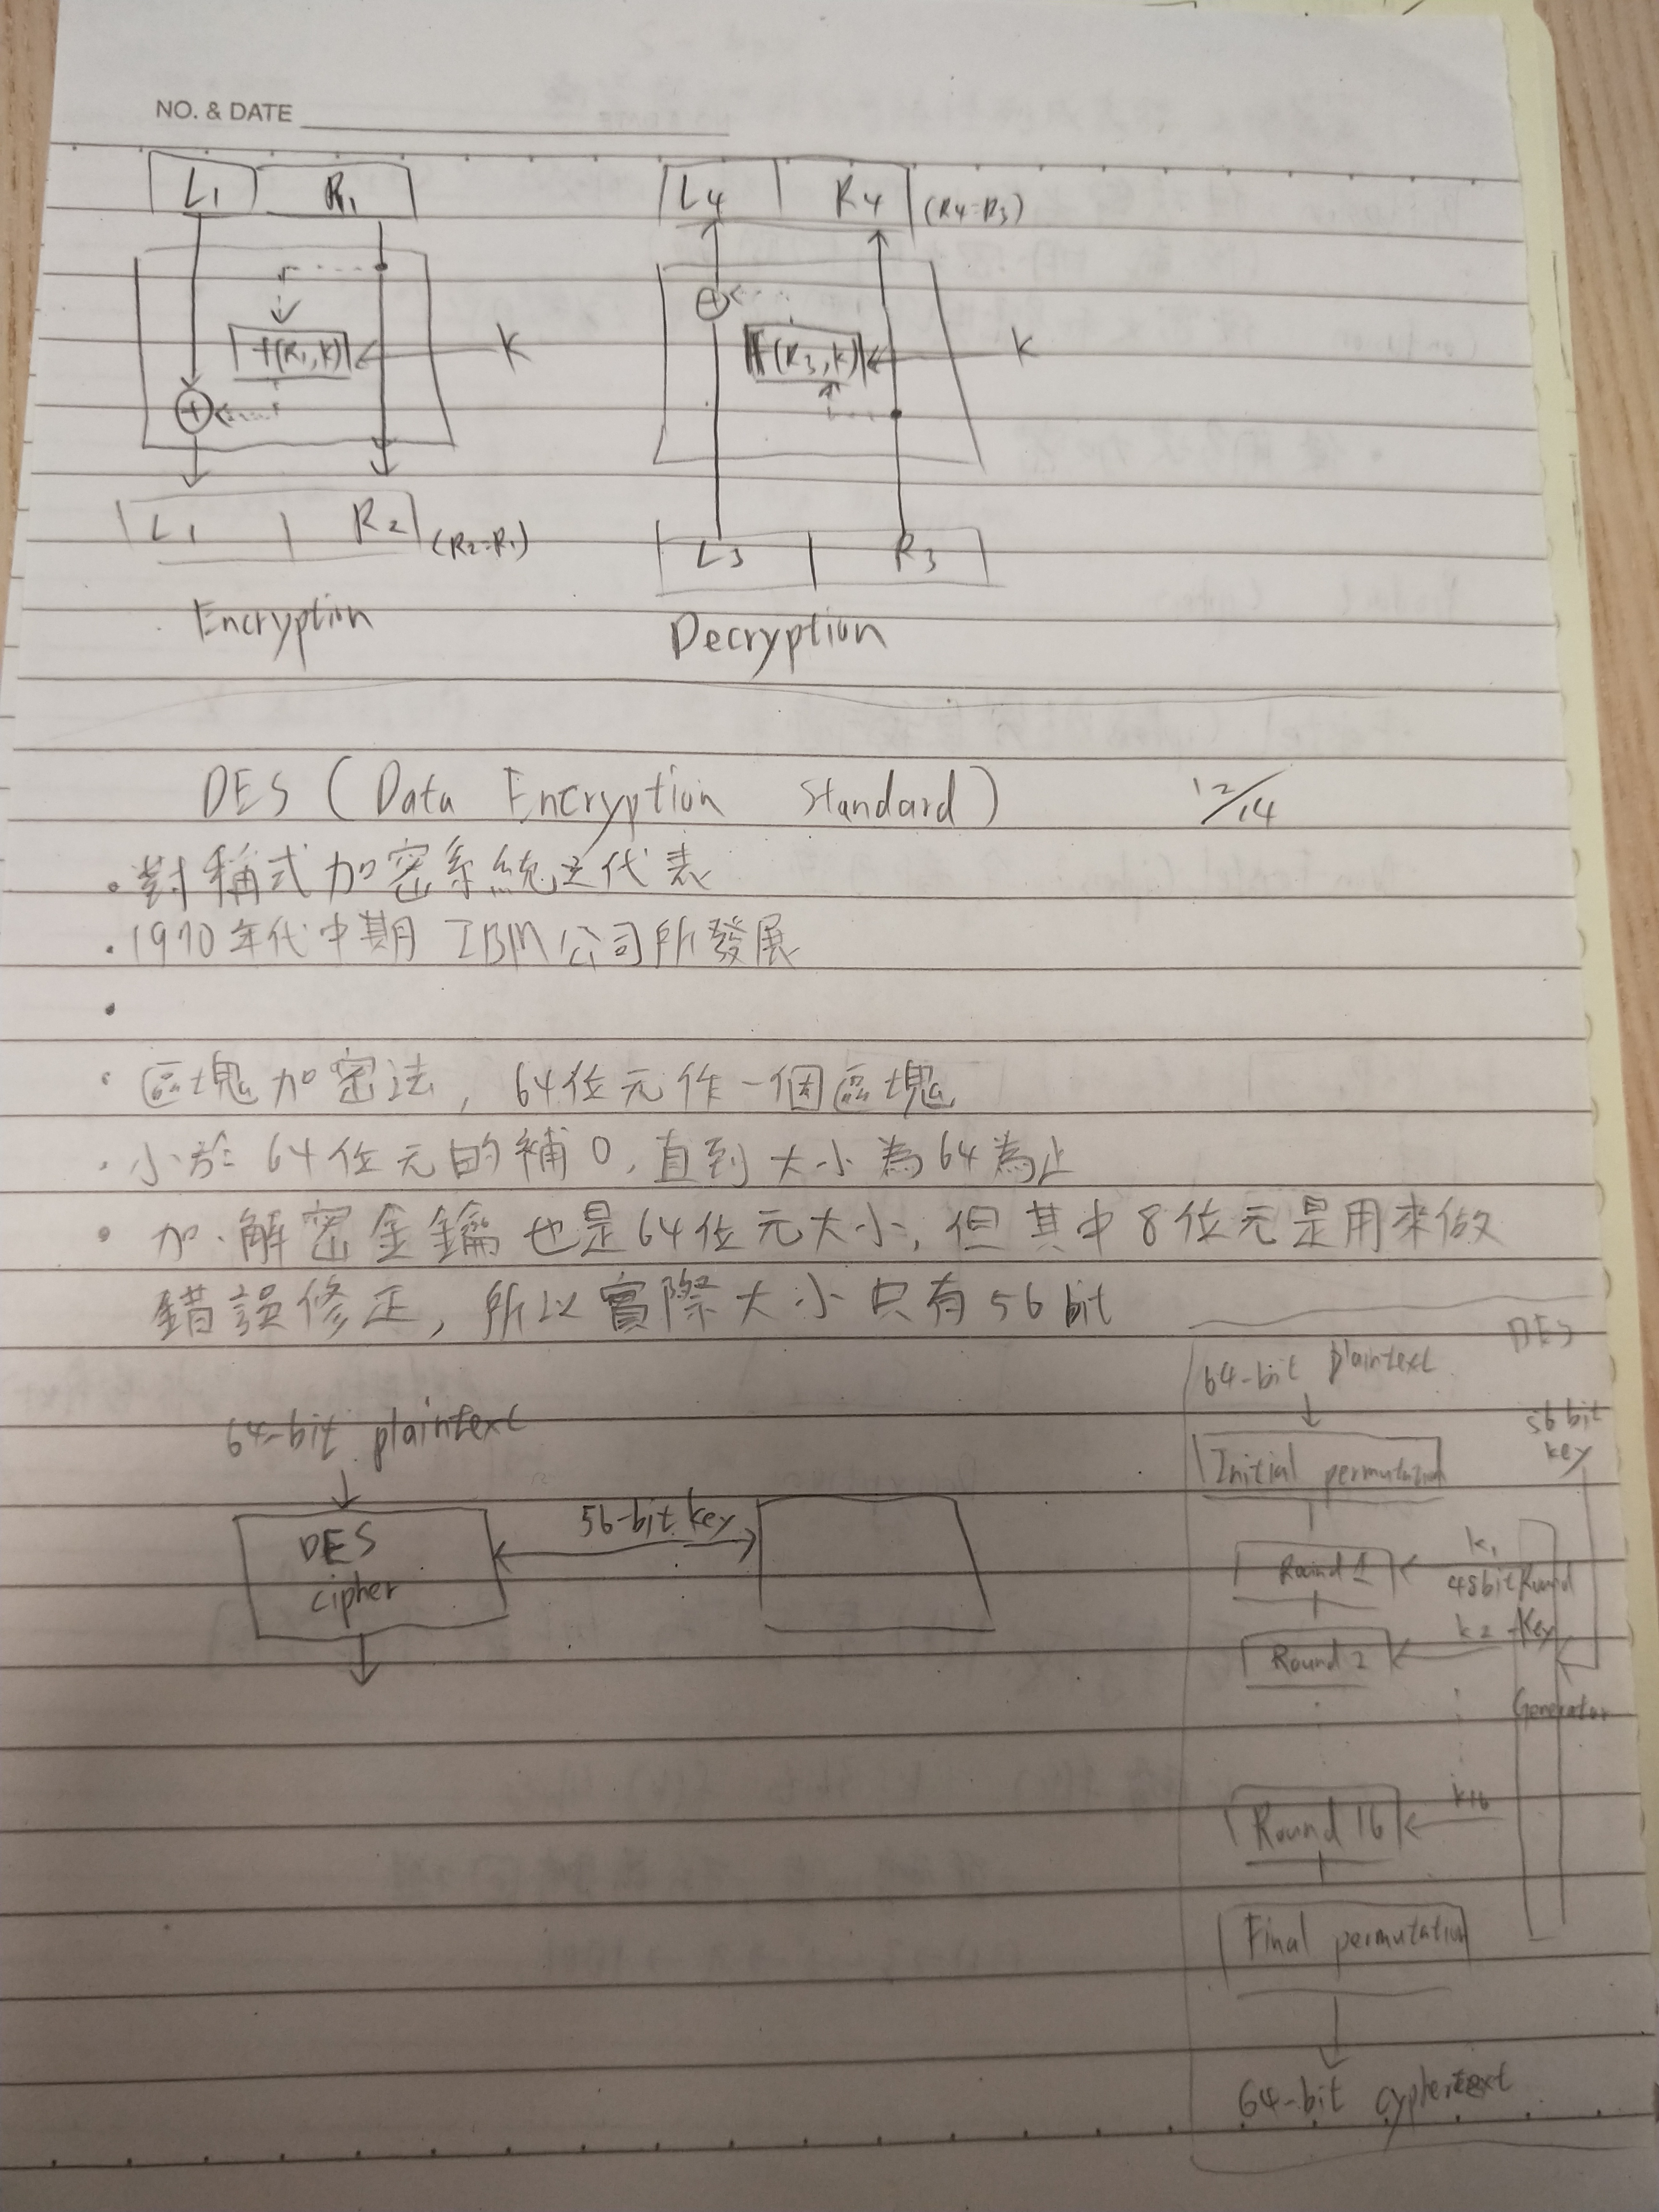 NO. & DATE
L1 R1
f(R1,K) K
L1 R2 (R2=R1)
Encryption
L4 R4 (R4=R3)
f(R3,K) K
L3 R3
Decryption
DES (Data Encryption Standard) 12/14
• 對稱式加密系統之代表
• 1970年代中期 IBM公司所發展
•
• 區塊加密法, 64位元作一個區塊
• 小於64位元的補0,直到大小為64為止
• 加、解密金鑰也是64位元大小,但其中8位元是用來做
錯誤修正,所以實際大小只有56bit
64-bit plaintext
DES
cipher
56-bit key
DES
64-bit plaintext
56bit
key
Initial permutation
Round 1
k1
48bit Round
Key
Round 2
k2
Generator
Round 16
k16
Final permutation
64-bit cyphertext